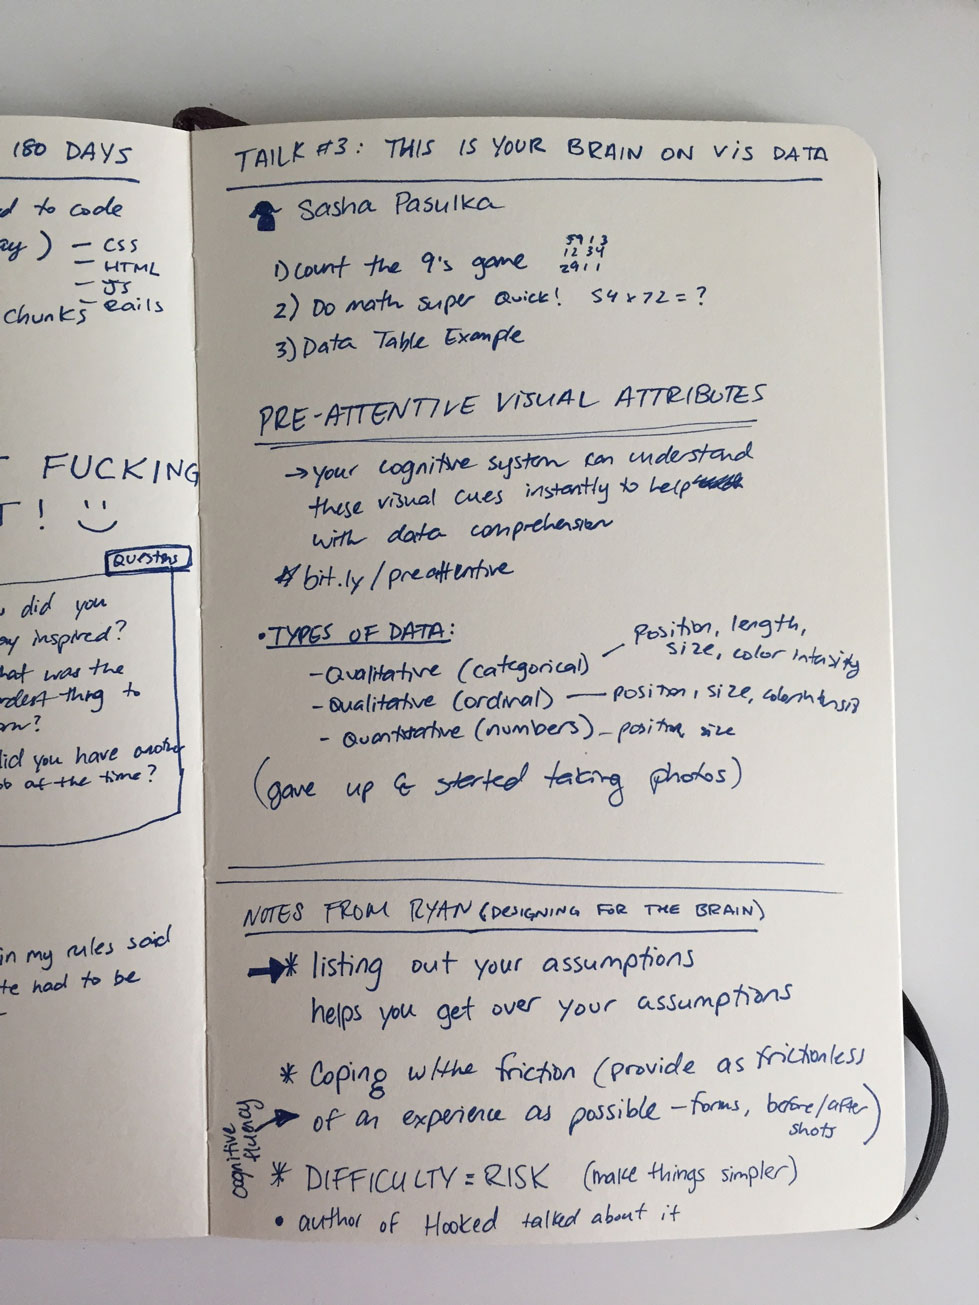 180 DAYS
d to code
ay) - CSS
- HTML
- JS
chunks - Rails
FUCKING
T! :)
QUESTIONS
did you
ay inspired?
hat was the
rdest thing to
did you have another
ob at the time?
in my rules said
te had to be
TAILK #3: THIS IS YOUR BRAIN ON VIS DATA
Sasha Pasulka
1) Count the 9's game 5913
1234
2911
2) Do math super Quick! 54 x 72 = ?
3) Data Table Example
PRE-ATTENTIVE VISUAL ATTRIBUTES
→ your cognitive system can understand
these visual cues instantly to help
with data comprehension
* bit.ly/preattentive
• TYPES OF DATA:
- Qualitative (categorical) — Position, length,
size, color intensity
- Qualitative (ordinal) — position, size, color intensity
- Quantitative (numbers) - position, size
(gave up & started taking photos)
NOTES FROM RYAN (DESIGNING FOR THE BRAIN)
→ * listing out your assumptions
helps you get over your assumptions
* Coping w/the friction (provide as frictionless
of an experience as possible - forms, before/after
shots)
cognitive
fluency →
* DIFFICULTY = RISK (make things simpler)
• author of Hooked talked about it